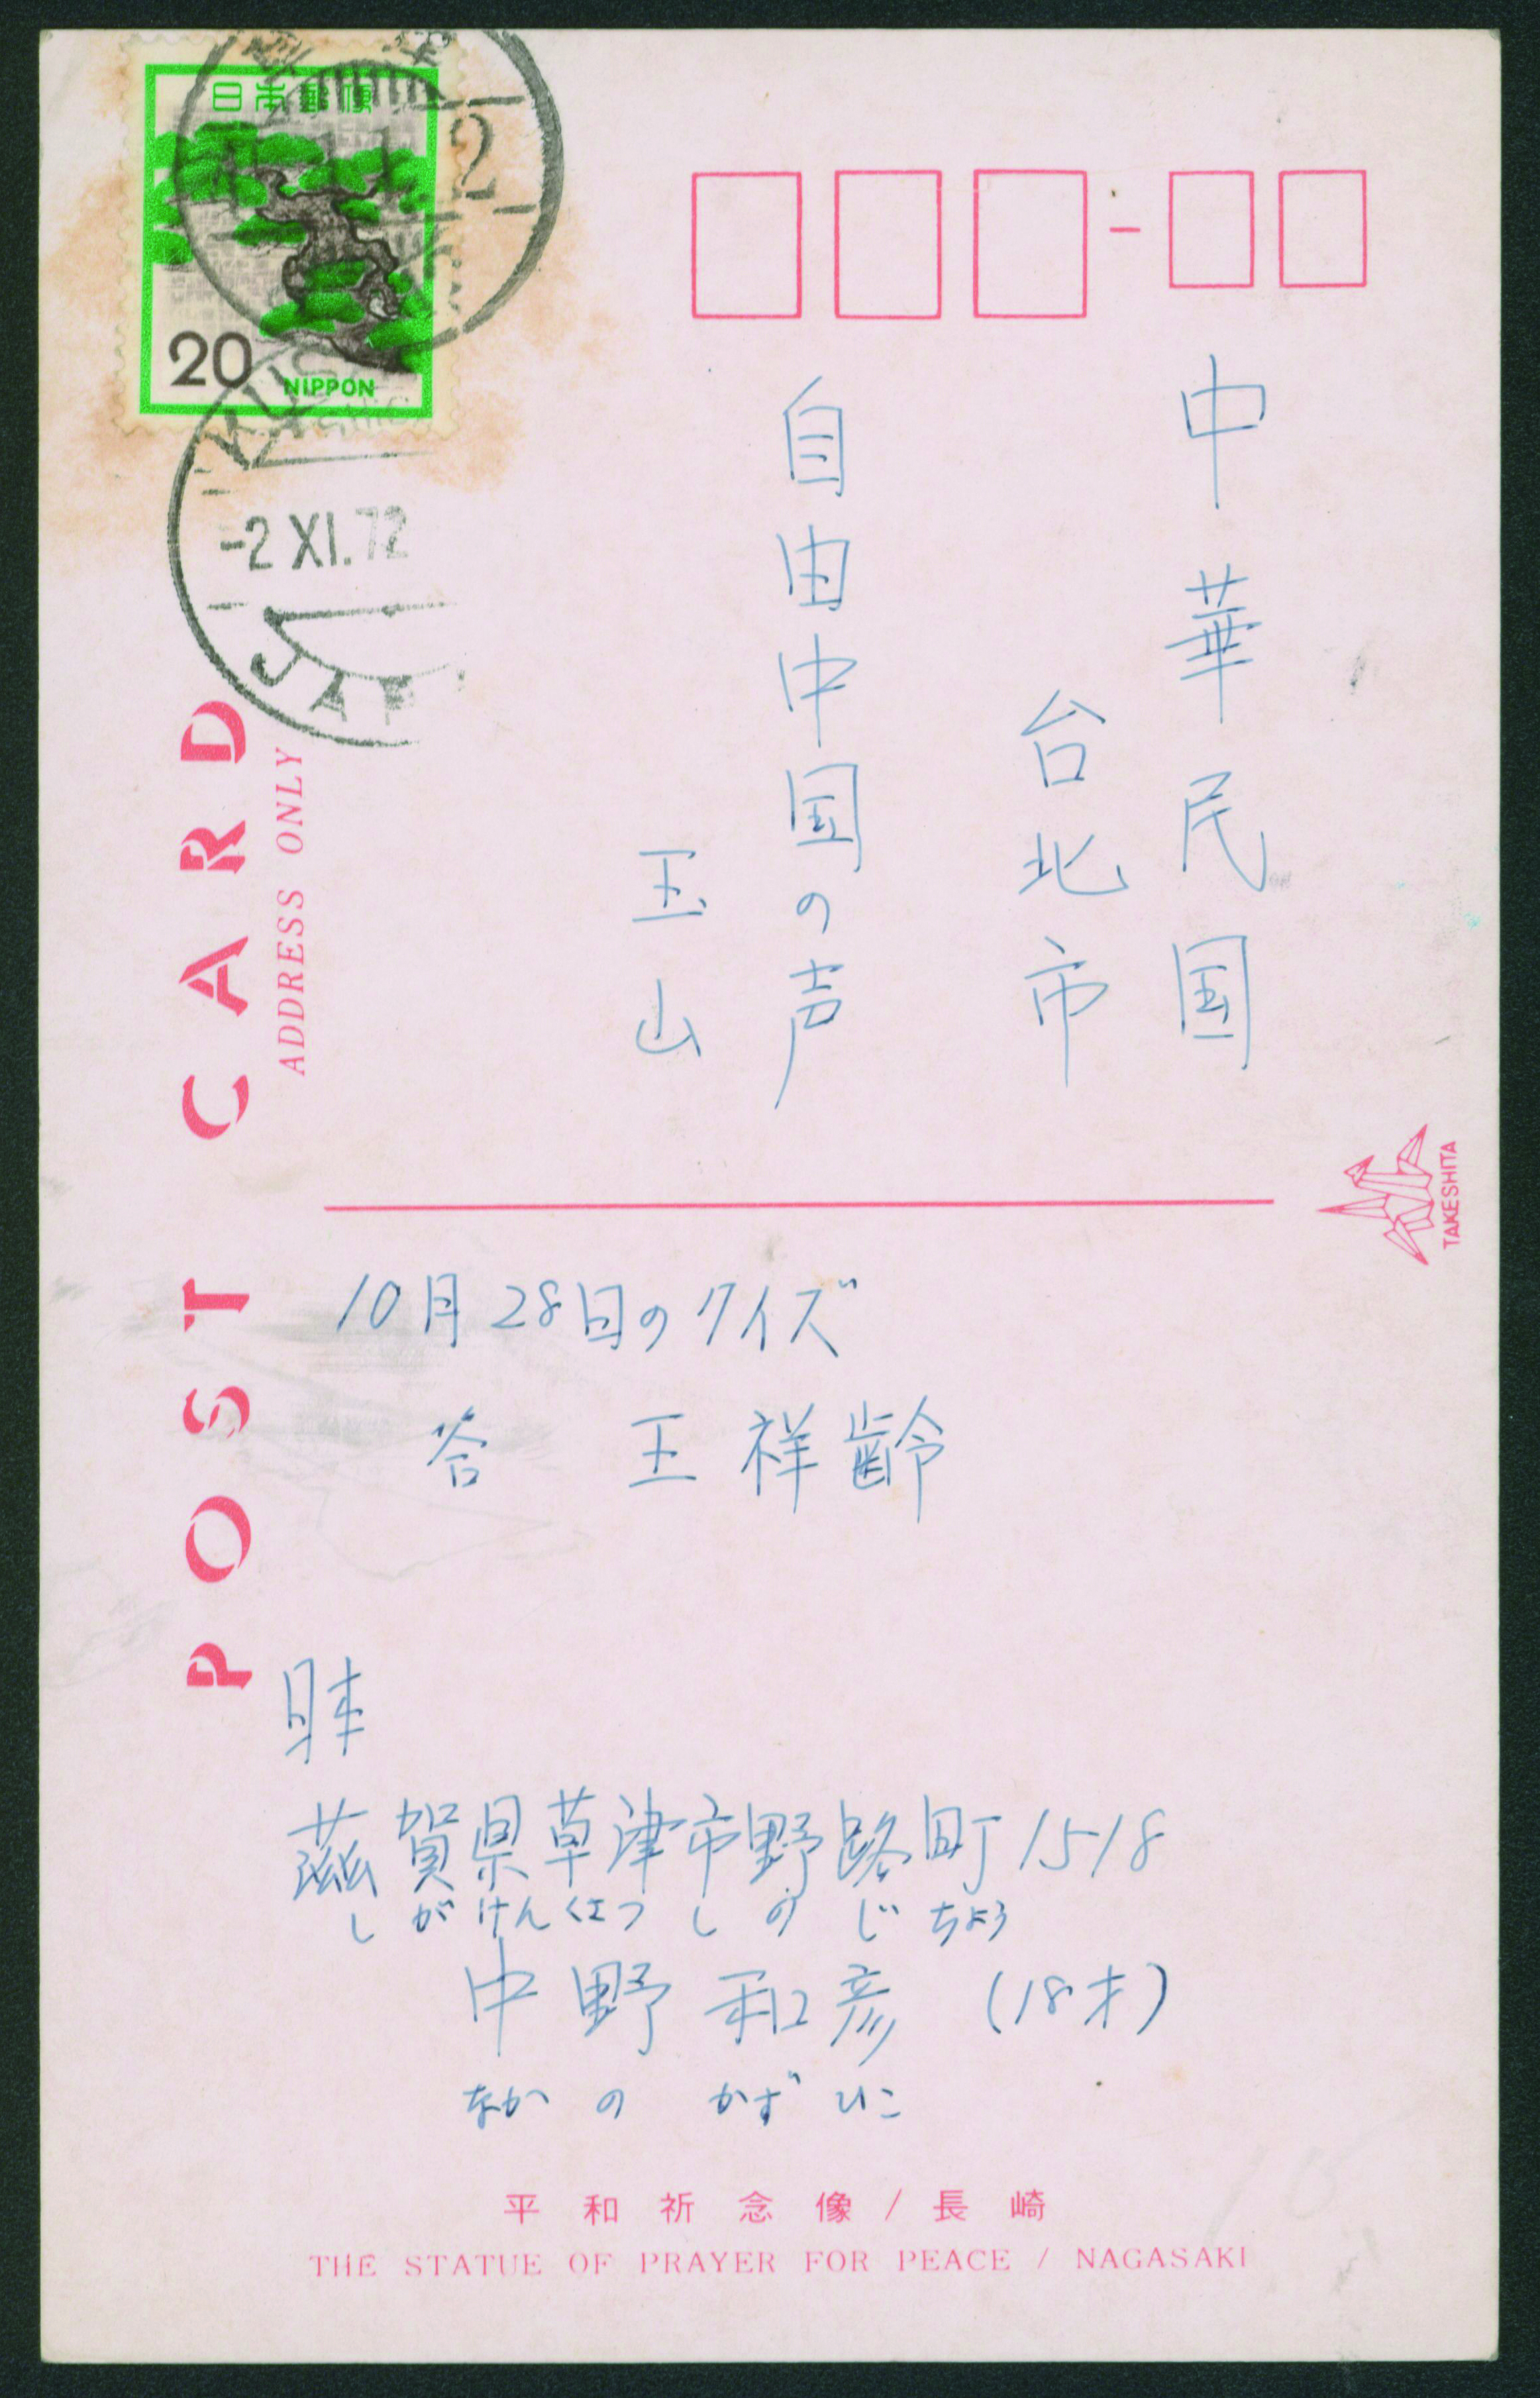 日本郵便
20
NIPPON
2
KUSA
-2 XI.72
JAP
POST CARD
ADDRESS ONLY
中華民国
台北市
自由中国の声
玉山
TAKESHITA
10月28日のクイズ
答 王祥齢
日本
滋賀県草津市野路町1518
しがけんくさつしのじちょう
中野和彦 (18才)
なかの かずひこ
平和祈念像/長崎
THE STATUE OF PRAYER FOR PEACE / NAGASAKI